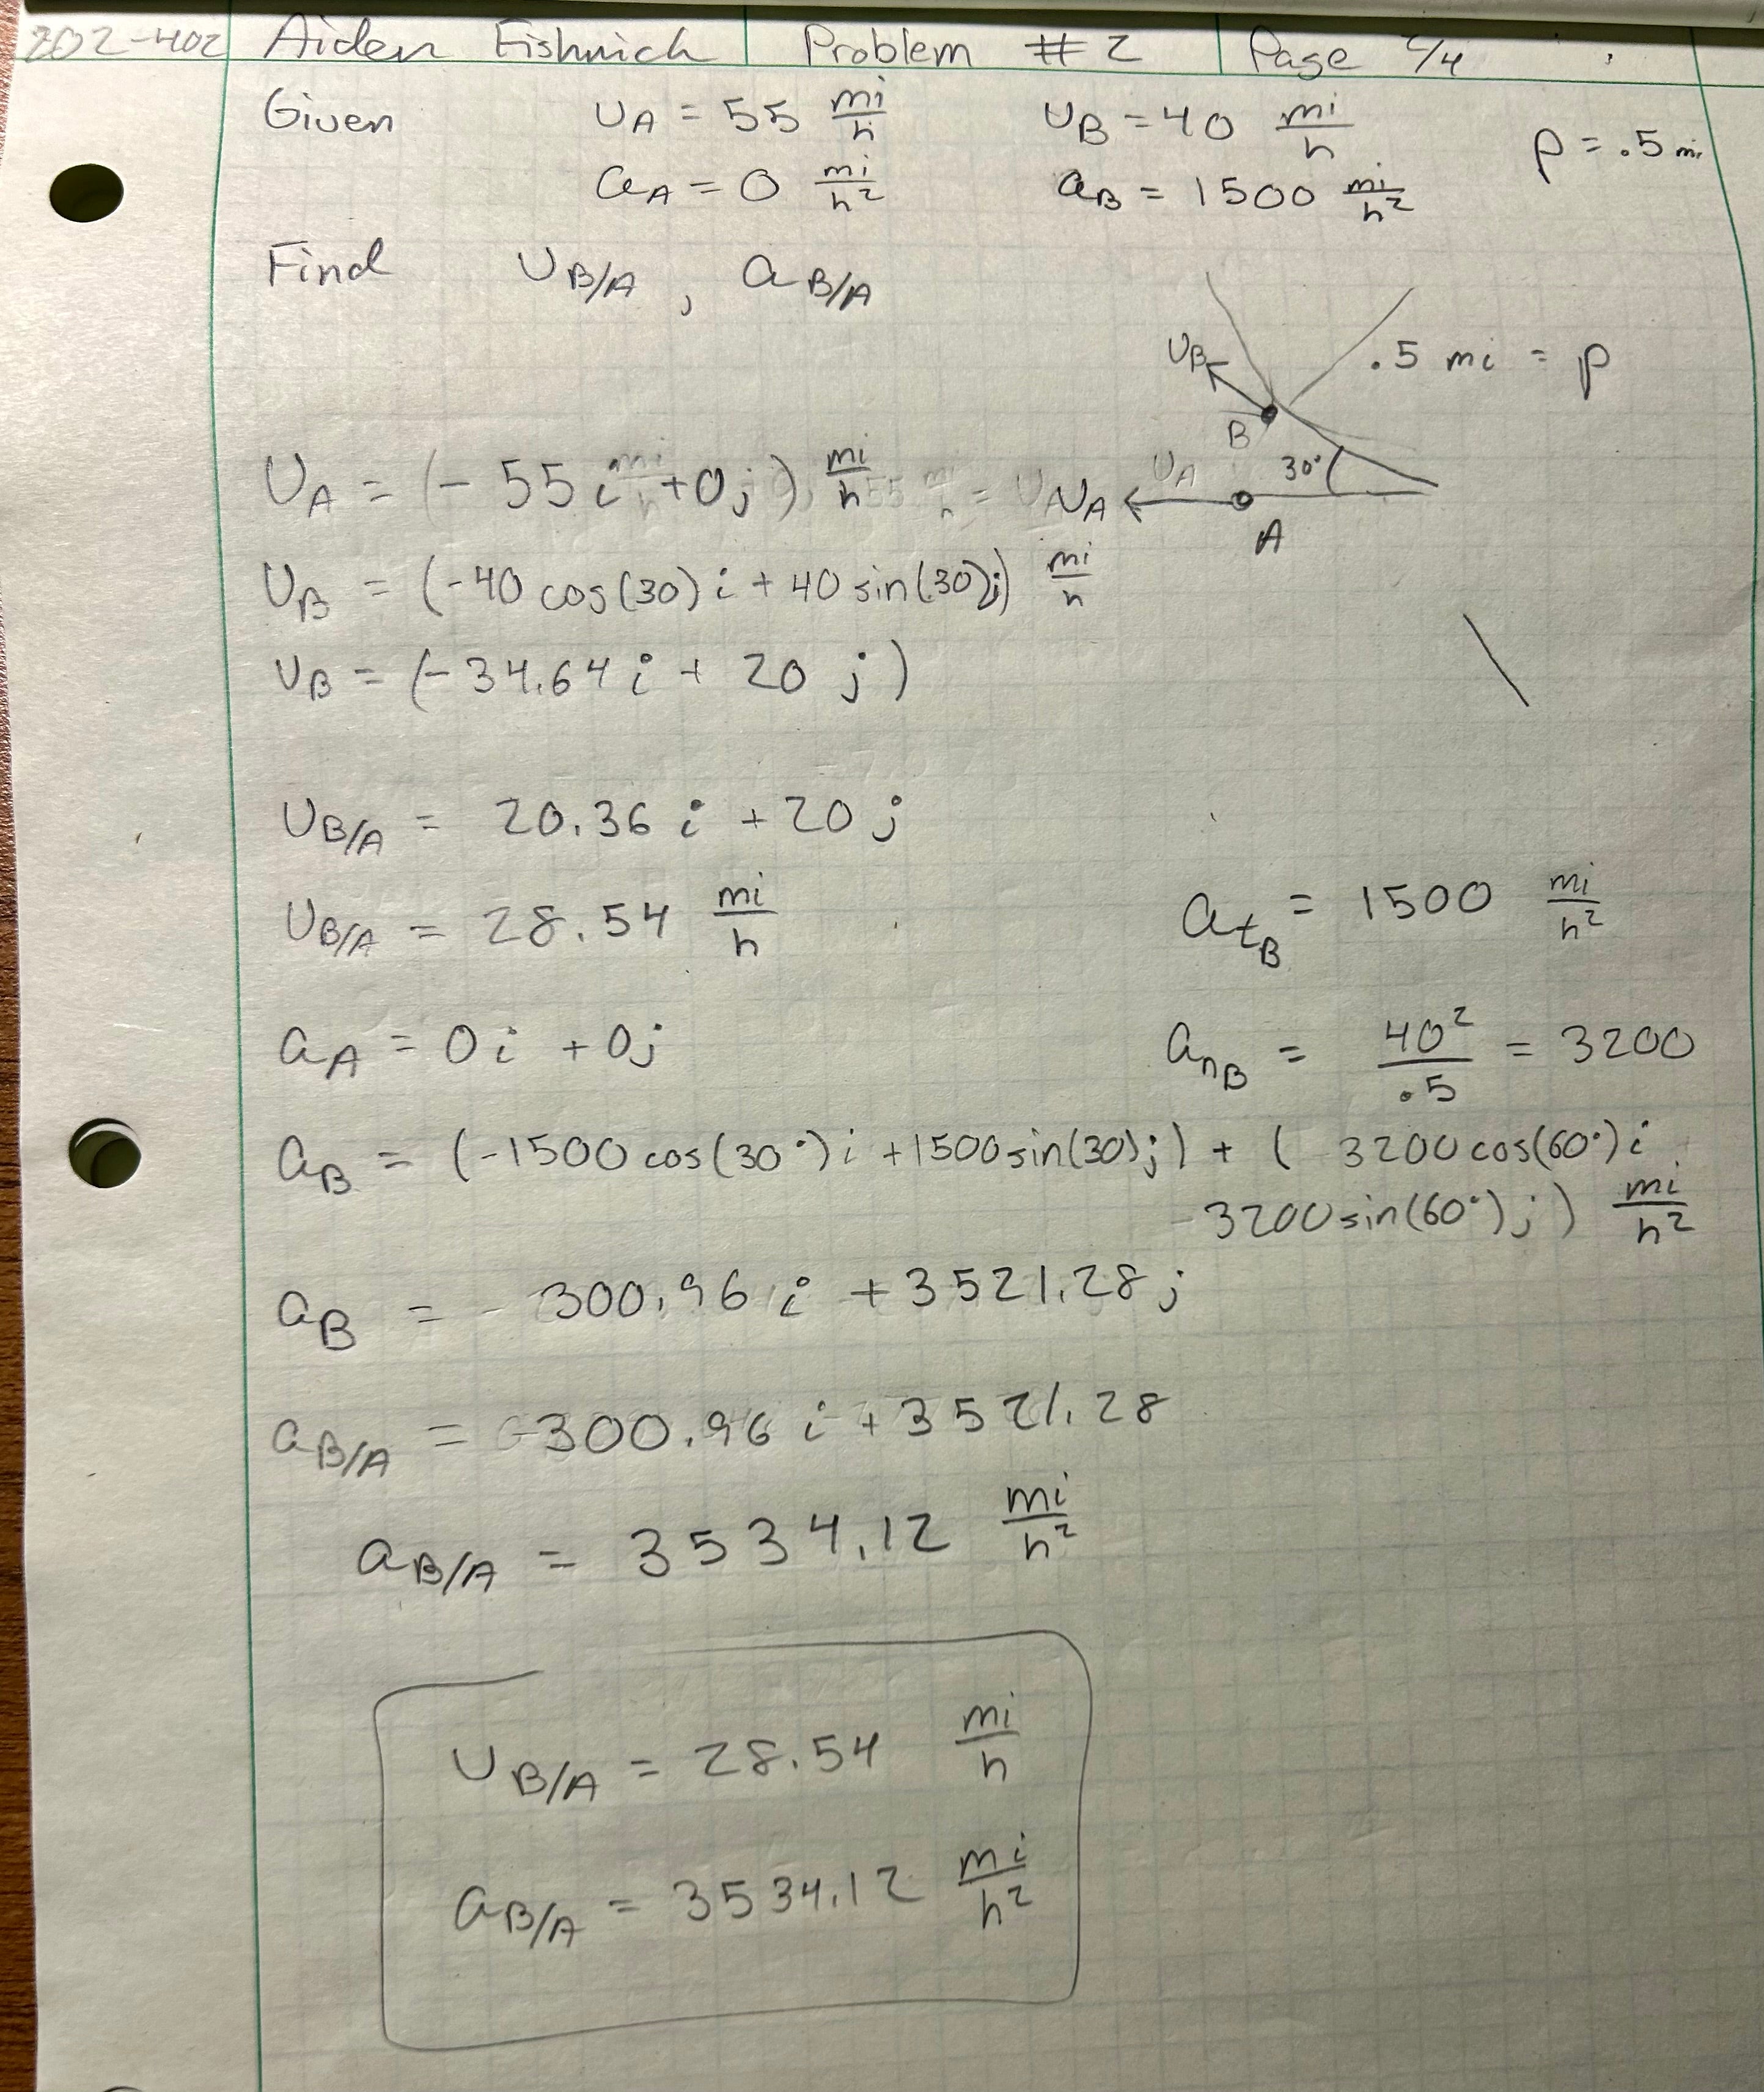 202-402 Aiden Fishnich Problem #2 Page 2/4
Given υA = 55 mi/h υB = 40 mi/h ρ = .5 mi
aA = 0 mi/h² aB = 1500 mi/h²
Find υB/A , aB/A
υB .5 mi = ρ
B
30°
υA
A
υA = (- 55 i + 0 j) mi/h υA
υB = (-40 cos(30) i + 40 sin(30) j) mi/h
υB = (-34.64 i + 20 j)
υB/A = 20.36 i + 20 j
υB/A = 28.54 mi/h
atB = 1500 mi/h²
aA = 0i + 0j
anB = 40²/.5 = 3200
aB = (-1500 cos(30°) i + 1500 sin(30) j) + ( 3200 cos(60°) i
- 3200 sin(60°) j) mi/h²
aB = - 300.96 i + 3521.28 j
aB/A = -300.96 i + 3521.28
aB/A = 3534.12 mi/h²
υB/A = 28.54 mi/h
aB/A = 3534.12 mi/h²